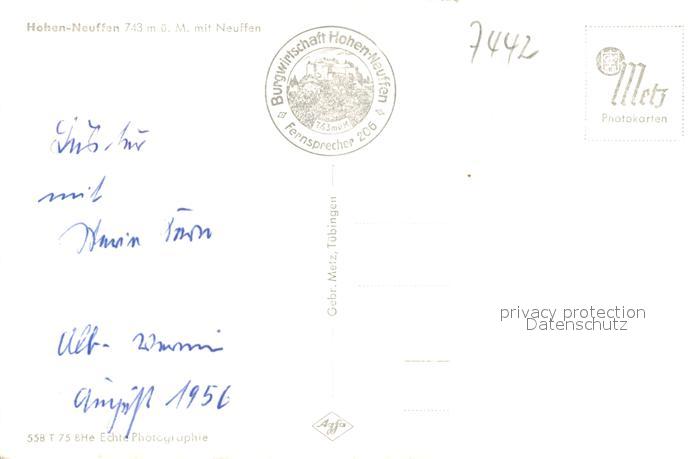 Hohen-Neuffen 743 m ü. M. mit Neuffen
Burgwirtschaft Hohen-Neuffen
743 m ü. M.
Fernsprecher 206
7442
Metz
Photokarten
mit
Alb-
August 1956
Gebr. Metz, Tübingen
privacy protection
Datenschutz
Agfa
558 T 75 BHe Echte Photographie